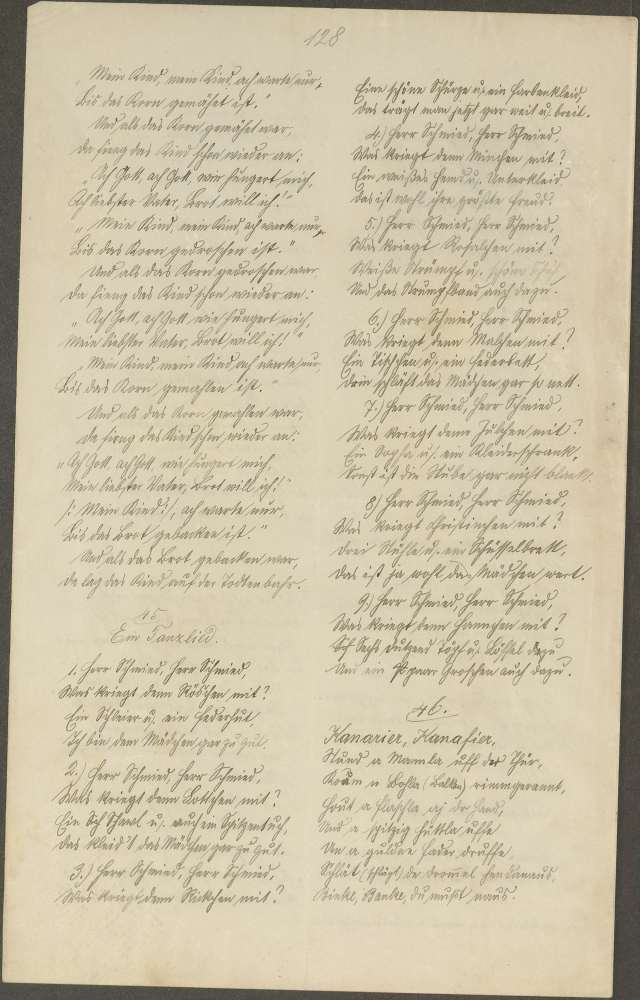 128
„Mein Kind, mein Kind, ach warte nur,
bis das Korn gemähet ist.“
Und als das Korn gemähet war,
da fieng das Kind schon wieder an:
„Ach Gott, ach Gott, wie hungert mich,
Ach liebster Vater, Brot will ich!“
„Mein Kind, mein Kind, ach warte nur,
bis das Korn gedroschen ist.“
Und als das Korn gedroschen war
da fieng das Kind schon wieder an:
„Ach Gott, ach Gott wie hungert mich,
Mein liebster Vater, Brot will ich!“
„Mein Kind, mein Kind, ach warte nur,
bis das Korn gemahlen ist.“
Und als das Korn gemahlen war,
da fieng das Kind schon wieder an:
„Ach Gott, ach Gott wie hungert mich,
Mein liebster Vater, Brot will ich!“
/: Mein Kind :/, ach warte nur,
bis das Brot gebacken ist.“
Und als das Brot gebacken war,
da lag das Kind auf der Todtenbahr.
45.
Ein Tanzlied.
1. Herr Schmied, Herr Schmied,
Was kriegt denn Röschen mit?
Ein Schleier u. ein Federhut
Ich bin dem Mädchen gar zu gut.
2.) Herr Schmied, Herr Schmied,
Was kriegt denn Lottchen mit?
Ein Shawl u. auch ein Spitzentuch,
das kleid't das Mädchen gar zu gut.
3.) Herr Schmied, Herr Schmied,
Was kriegt denn Rikchen mit?
Eine schöne Schürze u. ein Farbenkleid,
das trägt man jetzt gar weit u. breit.
4.) Herr Schmied, Herr Schmied,
Was kriegt denn Minchen mit?
Ein weißes Hemd u. Unterkleid
das ist wohl ihre größte Freud'.
5.) Herr Schmied, Herr Schmied,
Was kriegt Rosalchen mit?
Weiße Strümpf u. schöne Schuh
Und das Strumpfband auch dazu.
6.) Herr Schmied, Herr Schmied,
Was kriegt denn Malchen mit?
Ein Tischchen u. ein Federbett,
drin schläft das Mädchen gar so nett.
7.) Herr Schmied, Herr Schmied,
Was kriegt denn Julchen mit?
Ein Sopha u. ein Kleiderschrank,
sonst ist die Stube gar nicht blank.
8) Herr Schmied, Herr Schmied,
Was kriegt Christinchen mit?
drei Stühle u. ein Schüsselbrett,
das ist ja wohl das Mädchen wert.
9) Herr Schmied, Herr Schmied,
Was kriegt denn Hannchen mit?
Sechs Dutzend Töpf u. Löffel dazu
Und ein paar Groschen auch dazu.
46.
Kanarier, Kanafier,
Stund a Mamla uff der Thür,
Kram n Bohla (Balken) rimmgerannt,
Hout a Flaschla ai dr Hand,
Und a spitzig Hüttla uffe
Un a guldne Fader druffe,
Schlät (schlägt) de Dromel
Binke, Banke, du mußt naus.